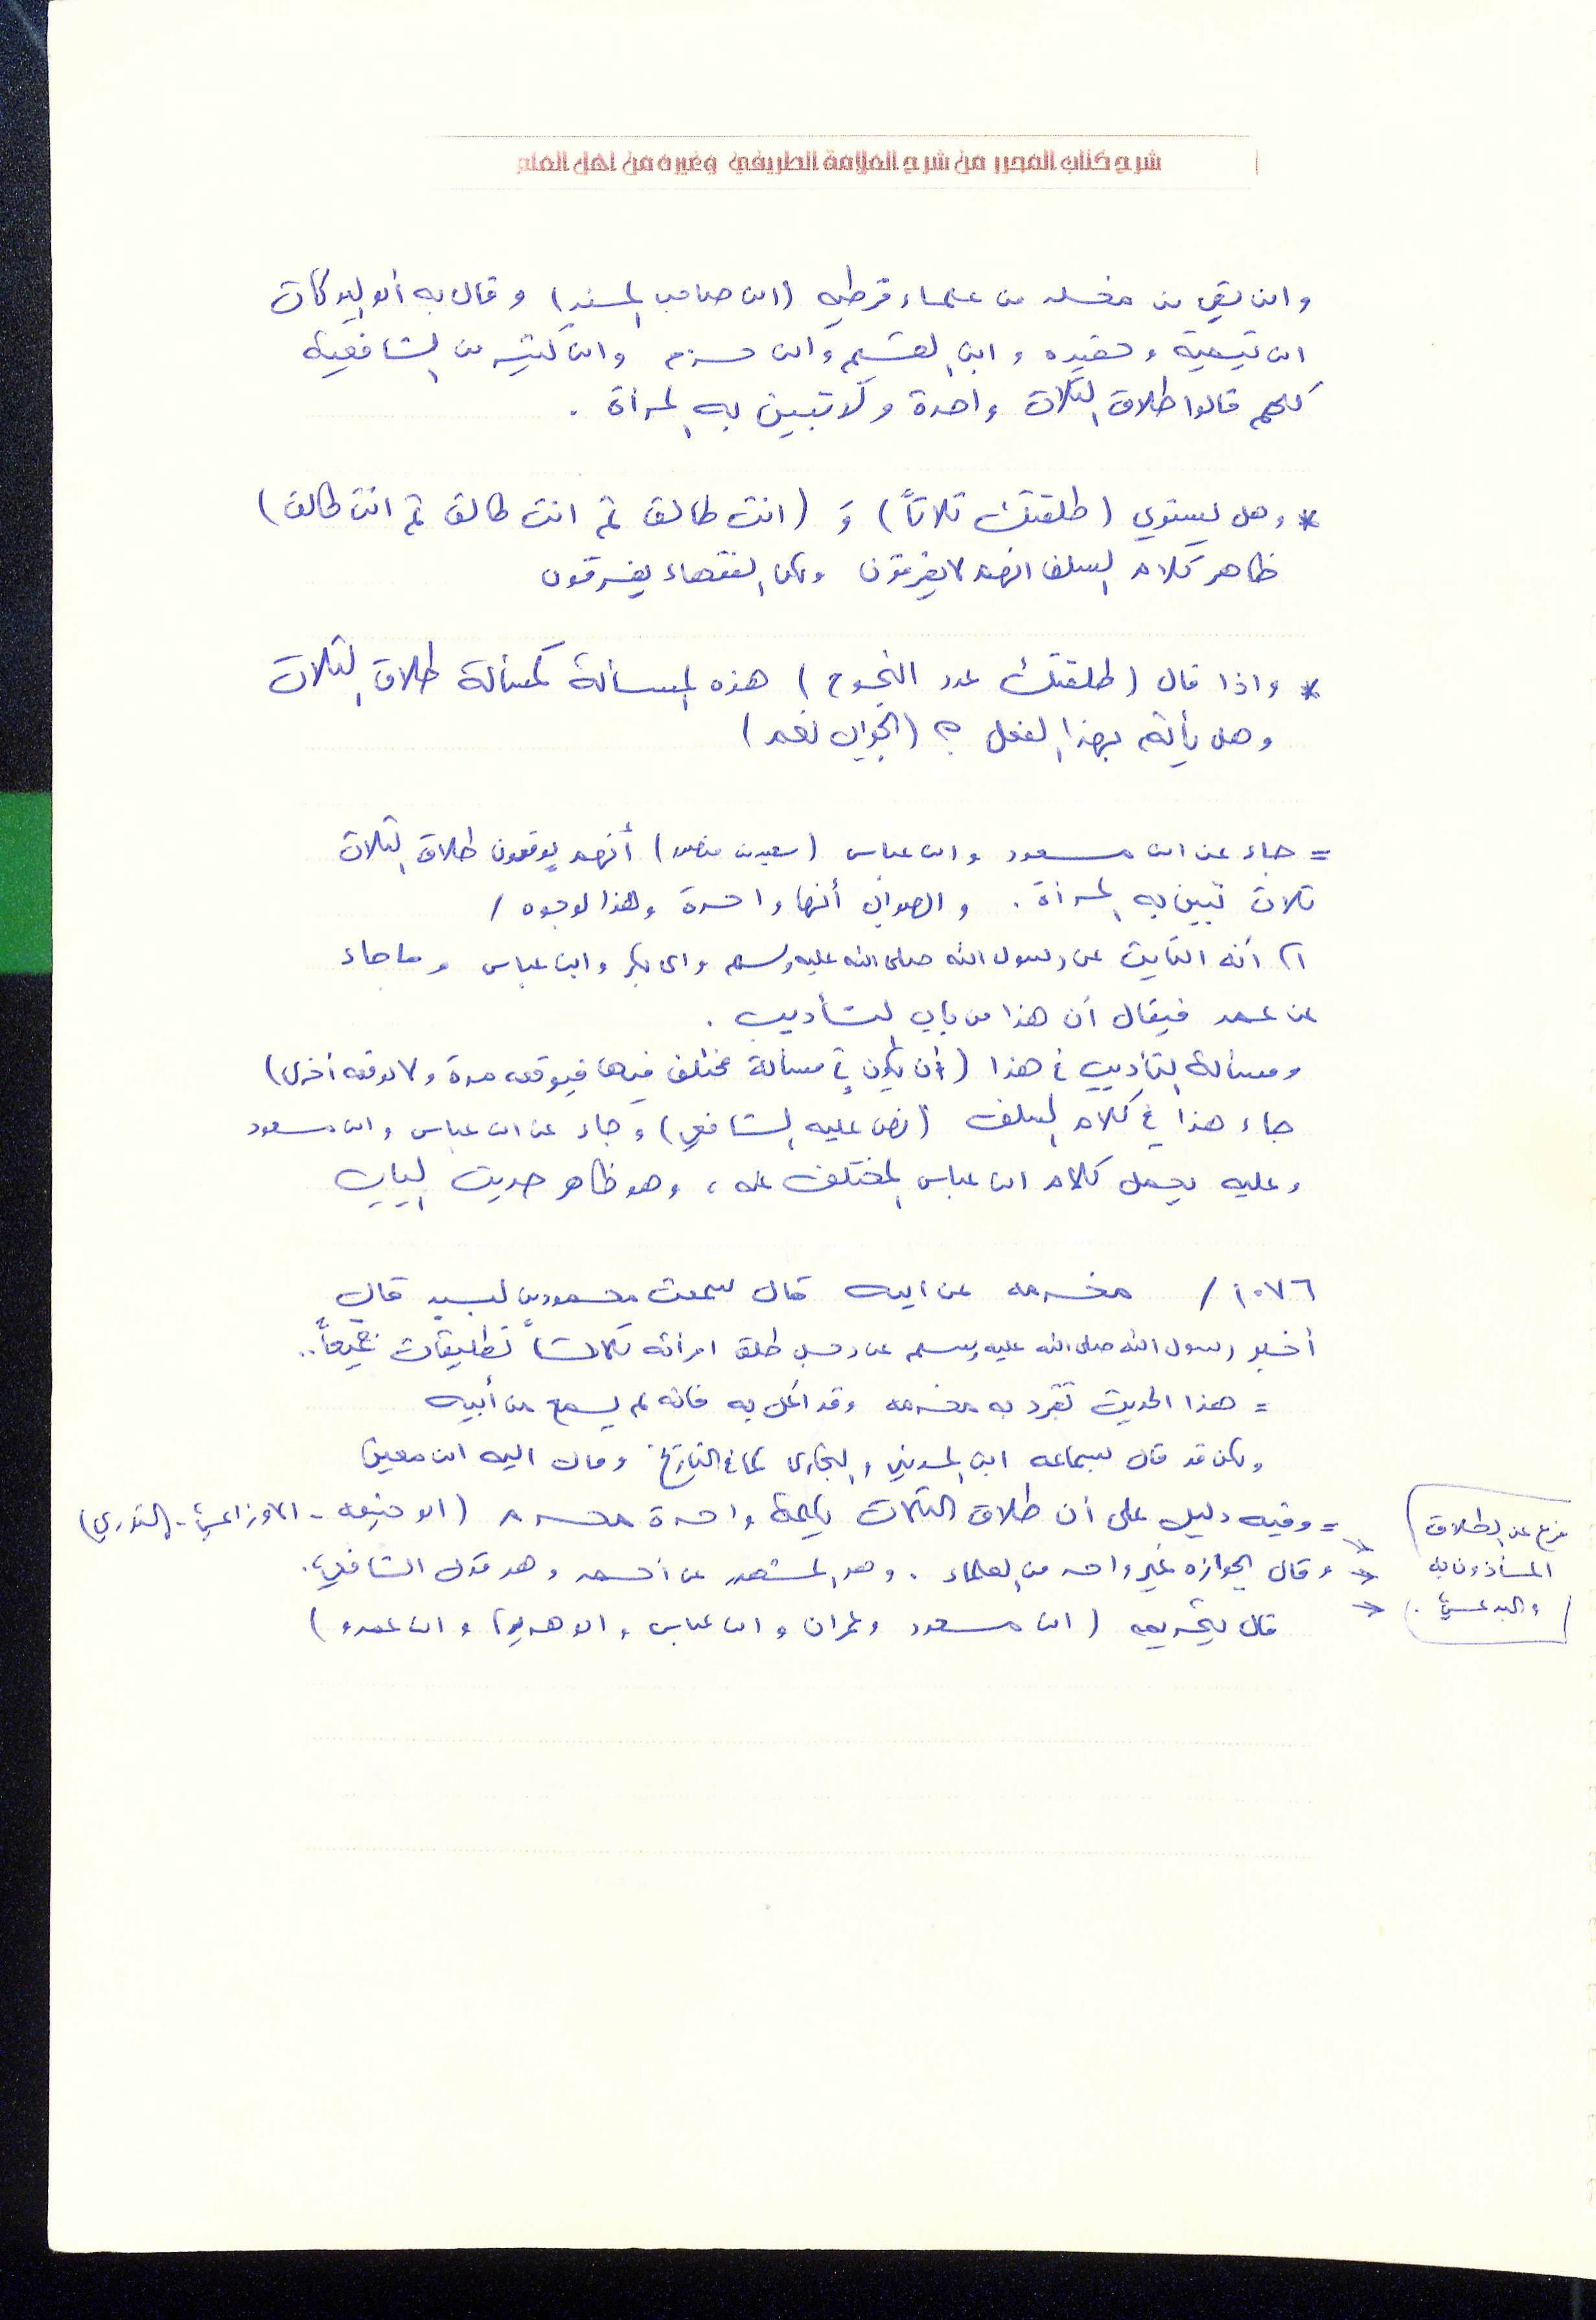 شرح كتاب المحرر من شرح العلامة الطريفي وغيره من اهل العلم
وابن بقي بن مخلد من علماء قرطبه (ابن صاحب المسند) وقال به أبو البركات
ابن تيمية وحفيده وابن القيم وابن حزم وابن كثير من الشافعية
كلهم قالوا طلاق الثلاث واحدة ولا تبين به المرأة .
* وهل يستوي (طلقتك ثلاثاً) وَ (انت طالق ثم انت طالق ثم انت طالق)
ظاهر كلام السلف انهم لا يفرقون ولكن الفقهاء يفرقون
* واذا قال (طلقتك عدد النجوم) هذه المسألة كمسألة طلاق الثلاث
وهل يأثم بهذا الفعل ؟ (الجواب نعم)
= جاء عن ابن مسعود وابن عباس (سعيد بن منصور) أنهم يوقعون طلاق الثلاث
ثلاث تبين به المرأة . والصواب أنها واحدة وهذا لوجوه /
١) أنه الثابت عن رسول الله صلى الله عليه وسلم وابي بكر وابن عباس وما جاء
عن عمر فيقال أن هذا من باب التأديب .
ومسألة التأديب في هذا (أن يكون في مسألة مختلف فيها فيوقعه مرة ولا يوقعه أخرى)
جاء هذا في كلام السلف (نص عليه الشافعي) وجاء عن ابن عباس وابن مسعود
وعليه يحمل كلام ابن عباس المختلف عنه ، وهو ظاهر حديث الباب
١٠٧٦ / مخرمه عن ابيه قال سمعت محمود بن لبيد قال
أخبر رسول الله صلى الله عليه وسلم عن رجل طلق امرأته ثلاث تطليقات جميعاً..
= هذا الحديث تفرد به مخرمه وقد اعل به فانه لم يسمع من أبيه
ولكن قد قال بسماعه ابن المديني والبخاري كما في التاريخ ومال اليه ابن معين
= وفيه دليل على أن طلاق الثلاث بكلمة واحدة محرم (ابو حنيفه - الاوزاعي - الثوري)
وقال بجوازه غير واحد من العلماء . وهو المشهور عن أحمد وهو قول الشافعي .
قال بتحريمه (ابن مسعود وعمران وابن عباس وابو هريرة وابن عمرو)
فرع عن الطلاق
المأذون به
والبدعي .